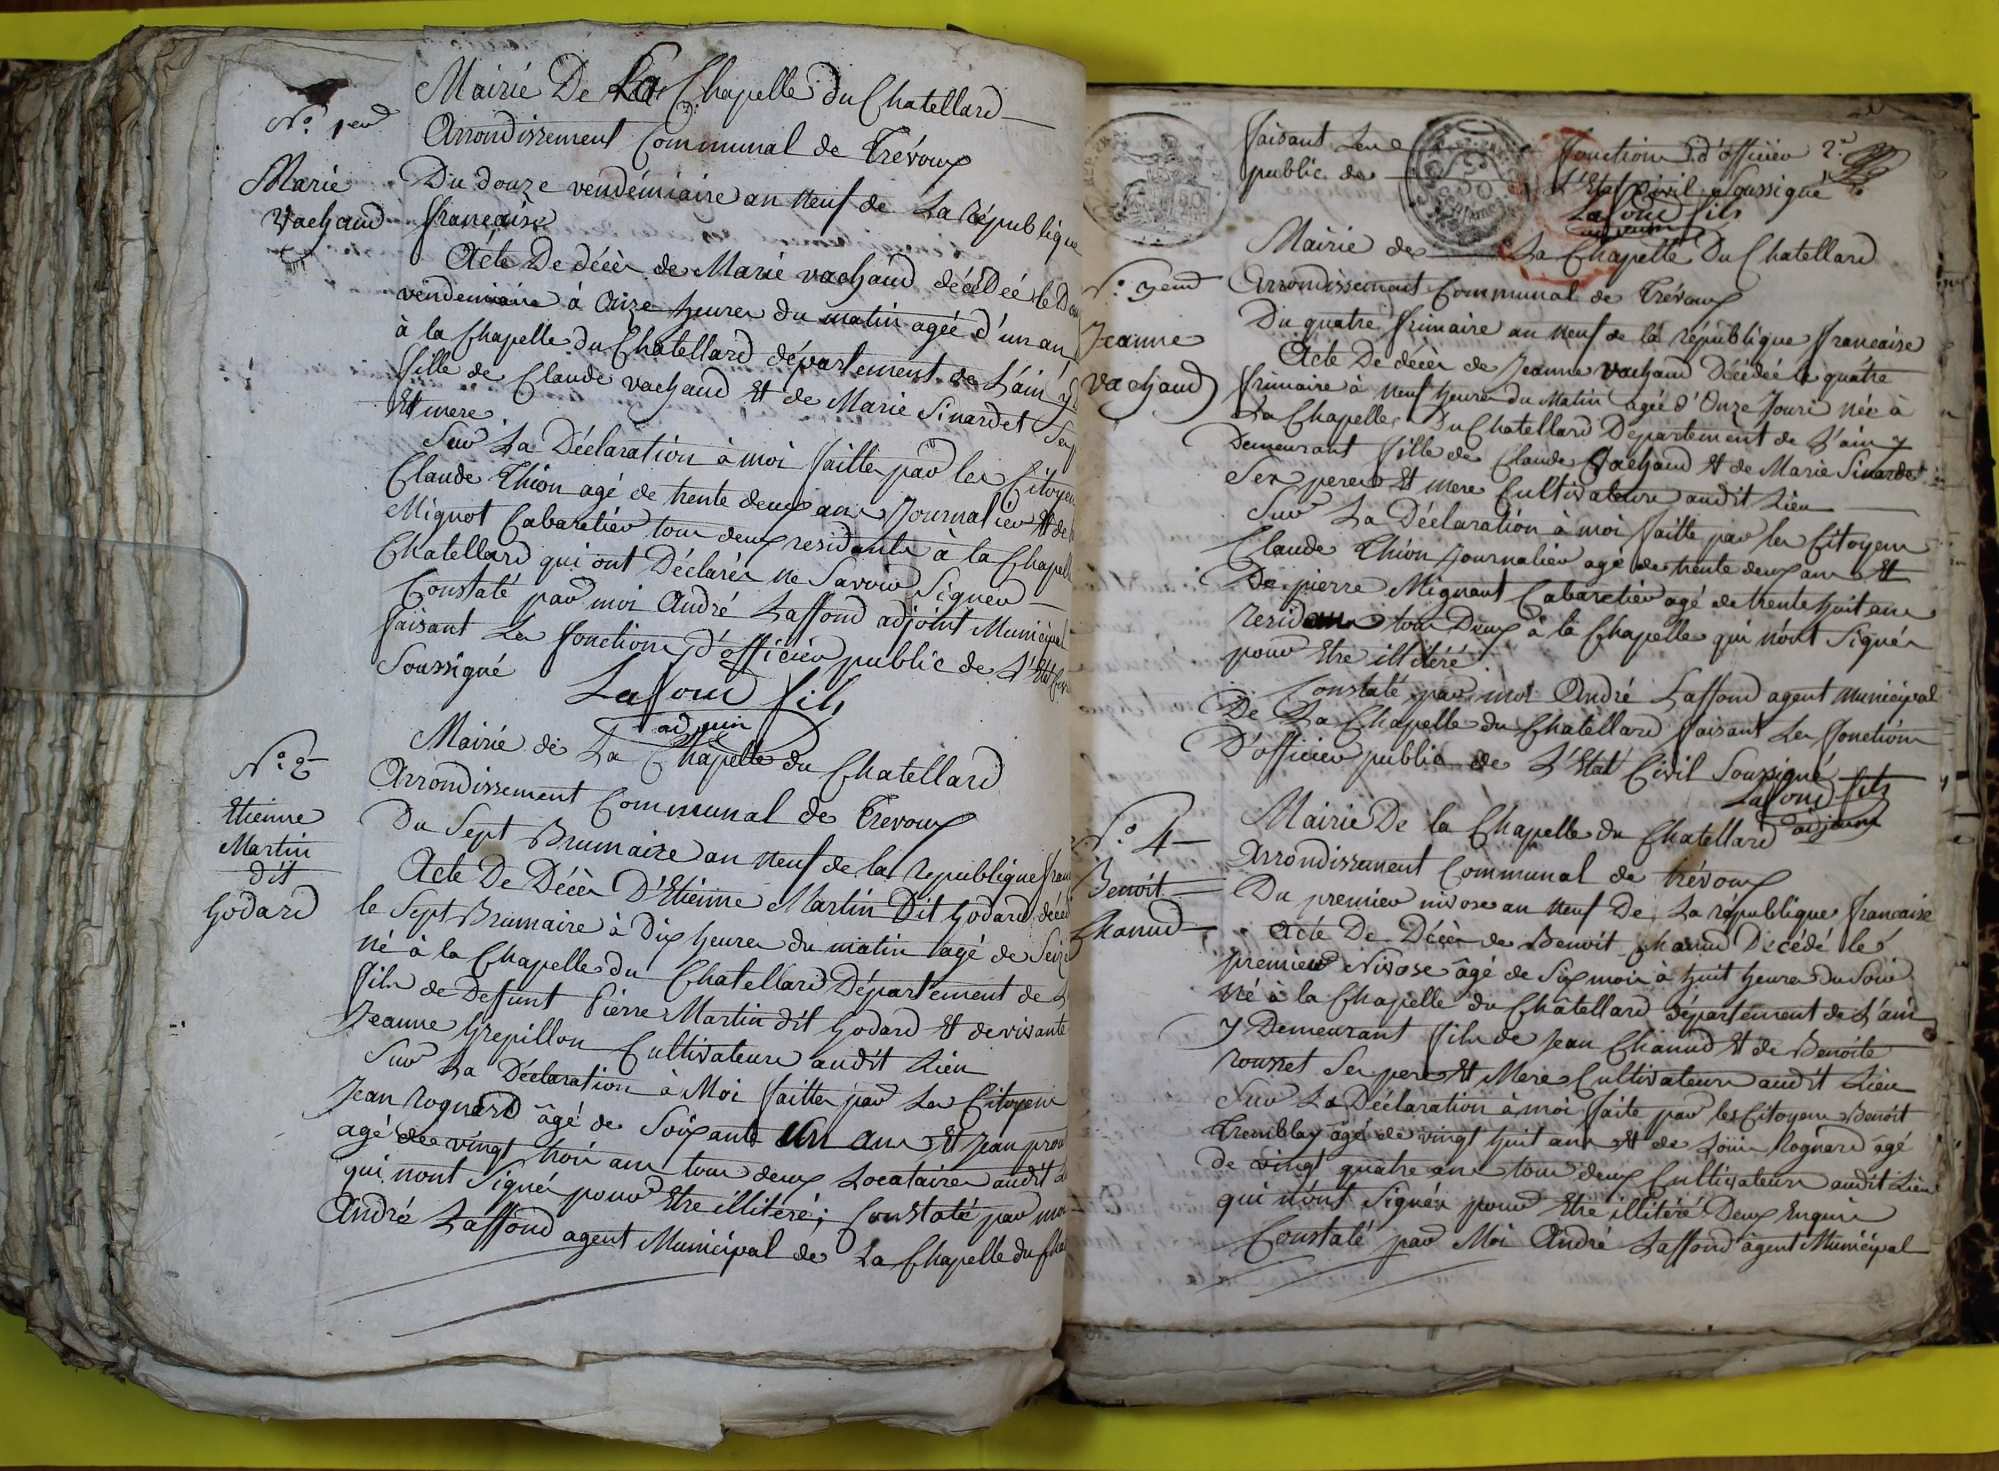 Mairié De La Chapelle du Chatellard
Arrondissement Communal de Trévoux
N.o 1er
Marie
Vachaud
Du douze vendémiaire an neuf de La république
francaise
Acte De décès de Marie vachaud décédée le Dou
vendemiaire à Onze heures du matin agée d'un an
à la Chapelle du Chatellard département de L'ain y
fille de Claude vachaud Et de Marie Sinardet Ses p
Et mere
Sur La Déclaration à moi faitte par les Citoyens
Claude Thion agé de trente deux ans Journalier Et de
Mignot Cabaretier tous deux residants à la Chapelle
Chatellard qui ont Déclarés ne Savoir Signer
Constaté par moi André Laffond adjoint Municipal
faisant Les fonctions D'officier public de L'Etat Civil
Soussigné
Lafond fils
adjoin
Mairié de La Chapelle du Chatellard
Arrondissement Communal de Trévoux
N.o 2
Etienne
Martin
dit
Godard
Du Sept Brumaire an neuf de la republique fran
Acte De Décès D'Etienne Martin Dit Godard décédé
le Sept Brumaire à Dix heures du matin agé de Seize
né à la Chapelle du Chatellard Département de L
fils de Defunt Pierre Martin dit Godard Et de vivante
Jeanne Grepillon Cultivateurs audit Lieu
Sur La Déclaration à Moi faitte par Les Citoyens
Jean Rognard âgé de Soixante un ans Et Jean
agé de vingt trois ans tous deux Locataires audit L
qui n'ont Signés pour Etre illitéré; Constaté par moi
André Laffond agent Municipal de La Chapelle du Chat
faisant Les fonctions d'officier 2e
public de L'Etat Civil Soussigné
Lafond fils
adjoin
Mairie de La Chapelle Du Chatellard
Arrondissement Communal de Trévoux
N.o 3eme
Jeanne
Vachaud
Du quatre frimaire an neuf de la république francaise
Acte De décès de Jeanne vachaud Décédée le quatre
frimaire à neuf heures du Matin agée d'Onze Jours née à
La Chapelle Du Chatellard Département de L'ain y
Demeurant fille de Claude Vachaud Et de Marie Sinardet
Ses pere Et mere Cultivateurs audit Lieu
Sur La Déclaration à moi faitte par les Citoyens
Claude Thion Journalier agé de trente deux ans Et
De pierre Mignaut Cabaretier agé de trente huit ans
residans tous Deux à la Chapelle qui n'ont Signés
pour Etre illitéré
Constaté par moi André Laffond agent municipal
De La Chapelle du Chatellard faisant Les fonctions
D'officier public de L'Etat Civil Soussigné
Lafond fils
adjoin
Mairie De la Chapelle du Chatellard
Arrondissement Communal de trévoux
N.o 4
Benoit
Chanud
Du premier nivose an neuf De La république francaise
Acte De Décès de Benoit Chanud Décédé le
premier Nivose âgé de Six mois à huit heures Du Soir
né à la Chapelle du Châtellard département de L'ain
y Demeurant fils de Jean Chanud Et de Benoite
rousset Ses pere Et Mere Cultivateurs audit Lieu
Sur La Déclaration à moi faite par les Citoyens Benoit
Tremblay âgé de vingt huit ans Et de Louis Rognard âgé
de vingt quatre ans tous deux Cultivateurs audit Lieu
qui n'ont Signés pour Etre illitéré Deux Enquis
Constaté par Moi André Laffond agent Municipal